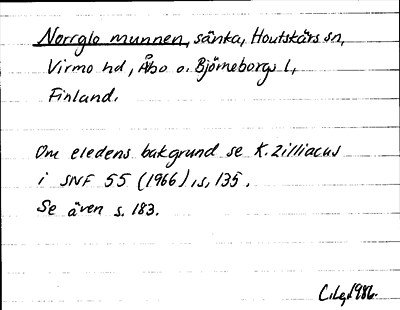 Norrglo munnen, sänka, Houtskärs sn,
Virmo hd, Åbo o. Björneborgs l,
Finland.
Om eledens bakgrund se K. Zilliacus
i SNF 55 (1966), s, 135.
Se även s. 183.
1986.